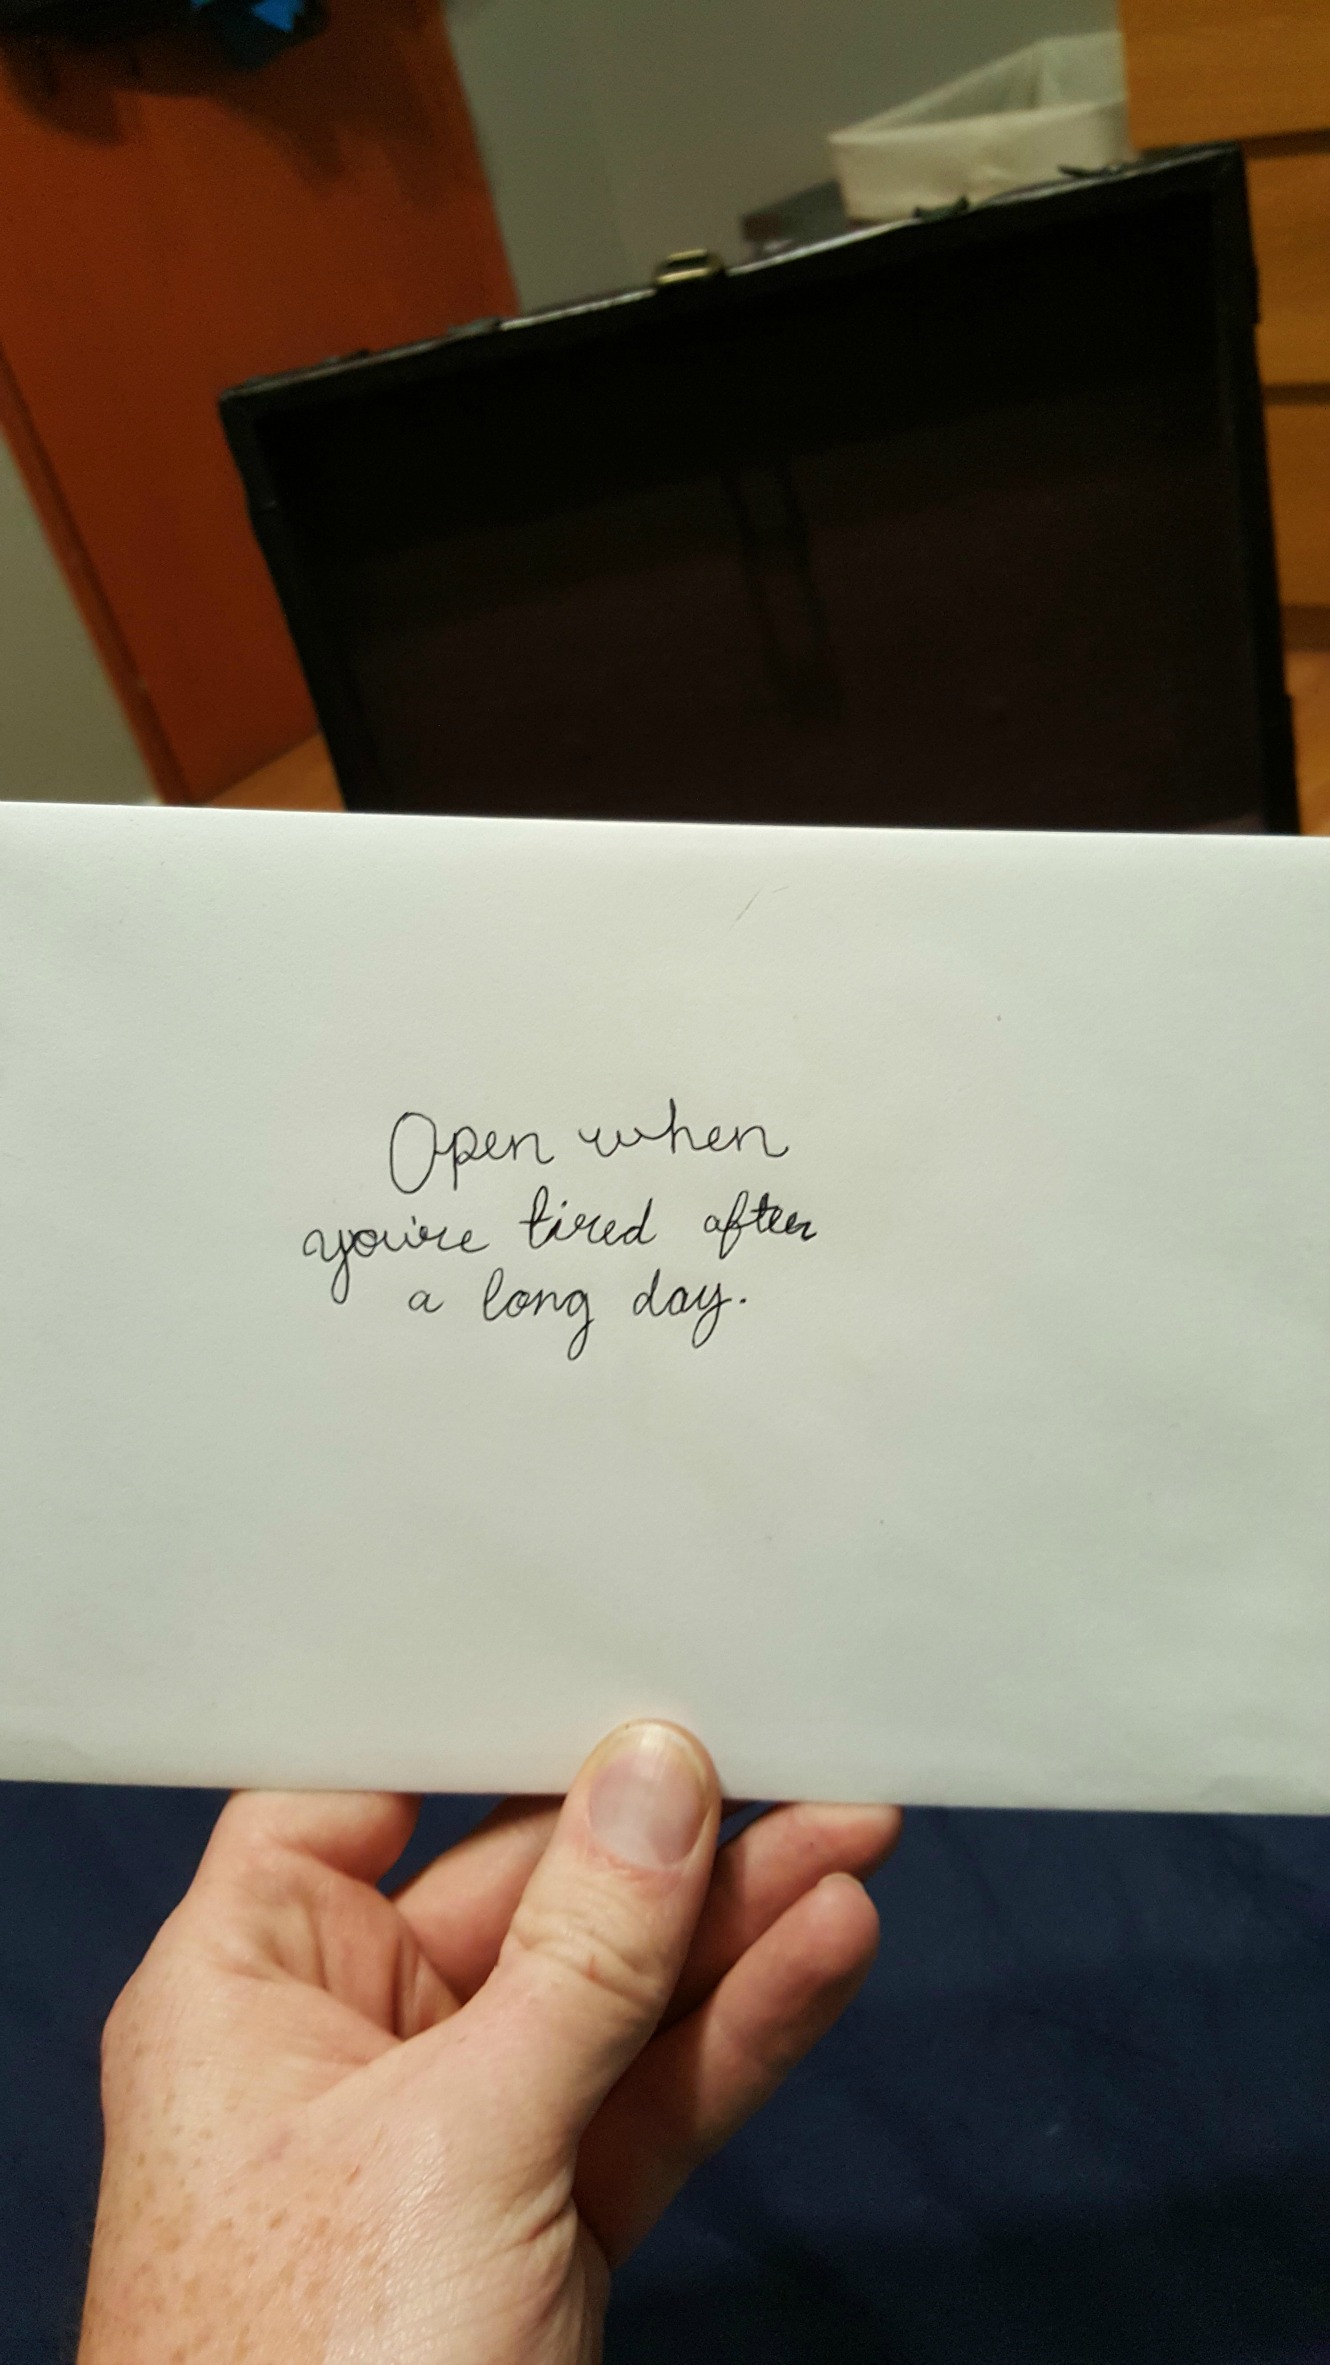 Open when
you're tired after
a long day.